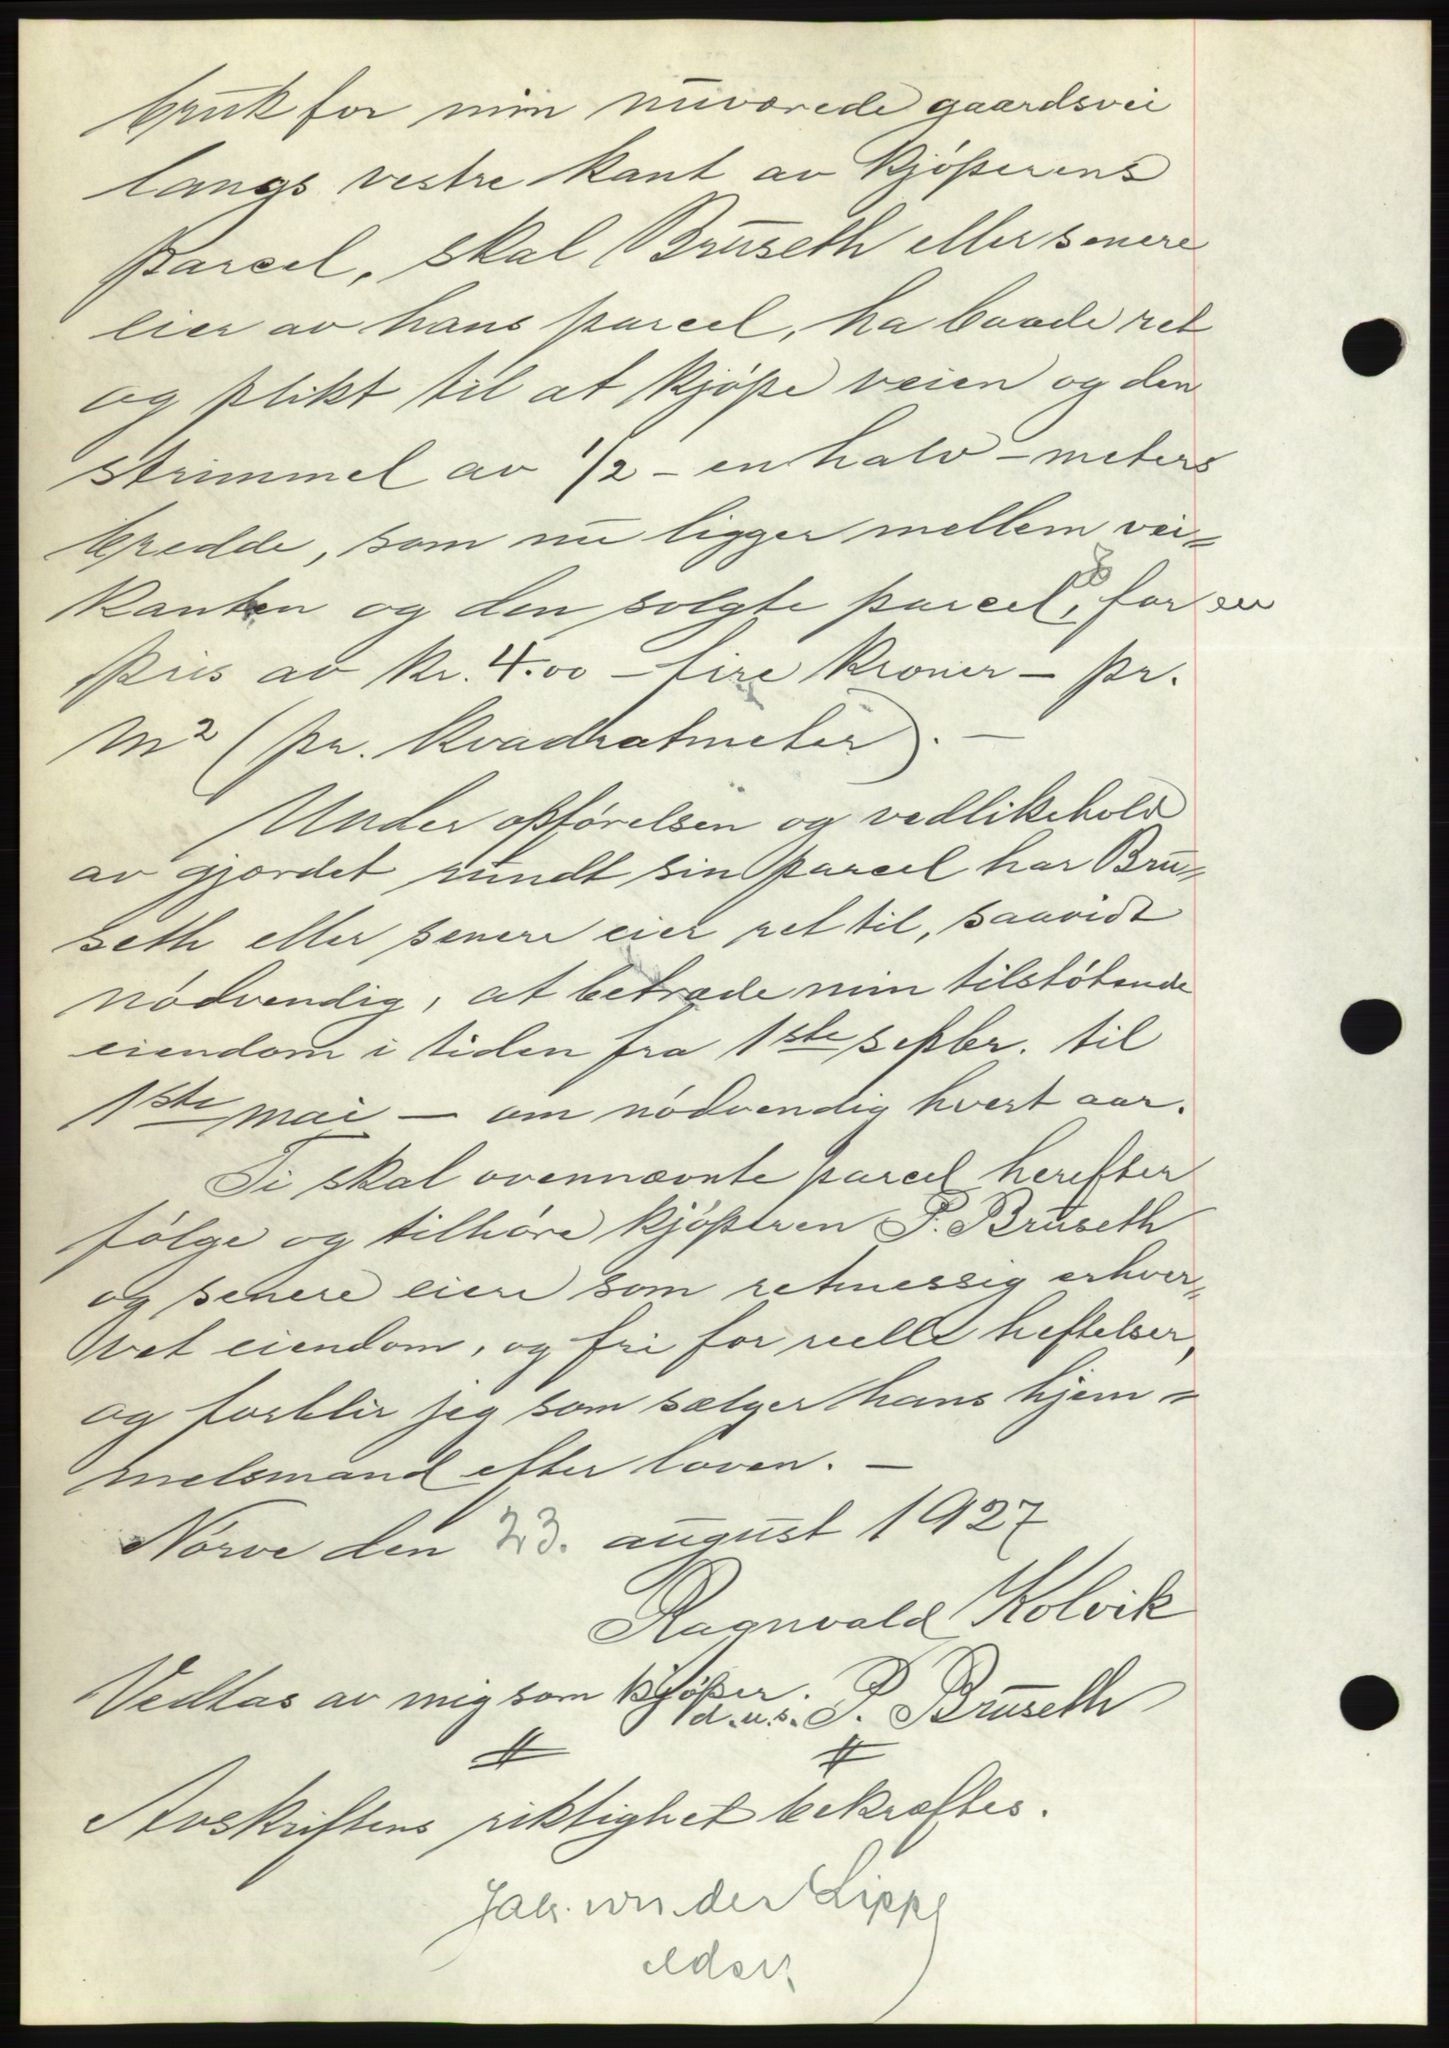 bruk for min nuværede gaardsvei
langs vestre kant av kjöperens
parcel, skal Bruseth eller senere
eier av hans parcel, ha baade ret
og plikt til at kjöpe veien og den
strimmel av 1/2 - en halv - meters
bredde, som nu ligger mellem vei=
kanten og den solgte parcel, for en
pris av kr. 4.00 - fire kroner - pr.
m² (pr. kvadratmeter). -
Under opförelsen og vedlikehold
av gjærdet rundt sin parcel har Bru=
seth eller senere eier ret til, saavidt
nödvendig, at betræde min tilstötende
eiendom i tiden fra 1ste septbr. til
1ste mai - om nödvendig hvert aar.
Ti skal ovennævnte parcel herefter
fölge og tilhöre kjöperen P. Bruseth
og senere eiere som retmessig erhver=
vet eiendom, og fri for reelle heftelser,
og forblir jeg som sælger hans hjem=
melsmand efter loven. -
Nörve den 23. august 1927
Ragnvald Kolvik
Vedtas av mig som kjöper.
d.u.s. P. Bruseth
Avskriftens riktighet bekræftes.
Jak. von der Lippe